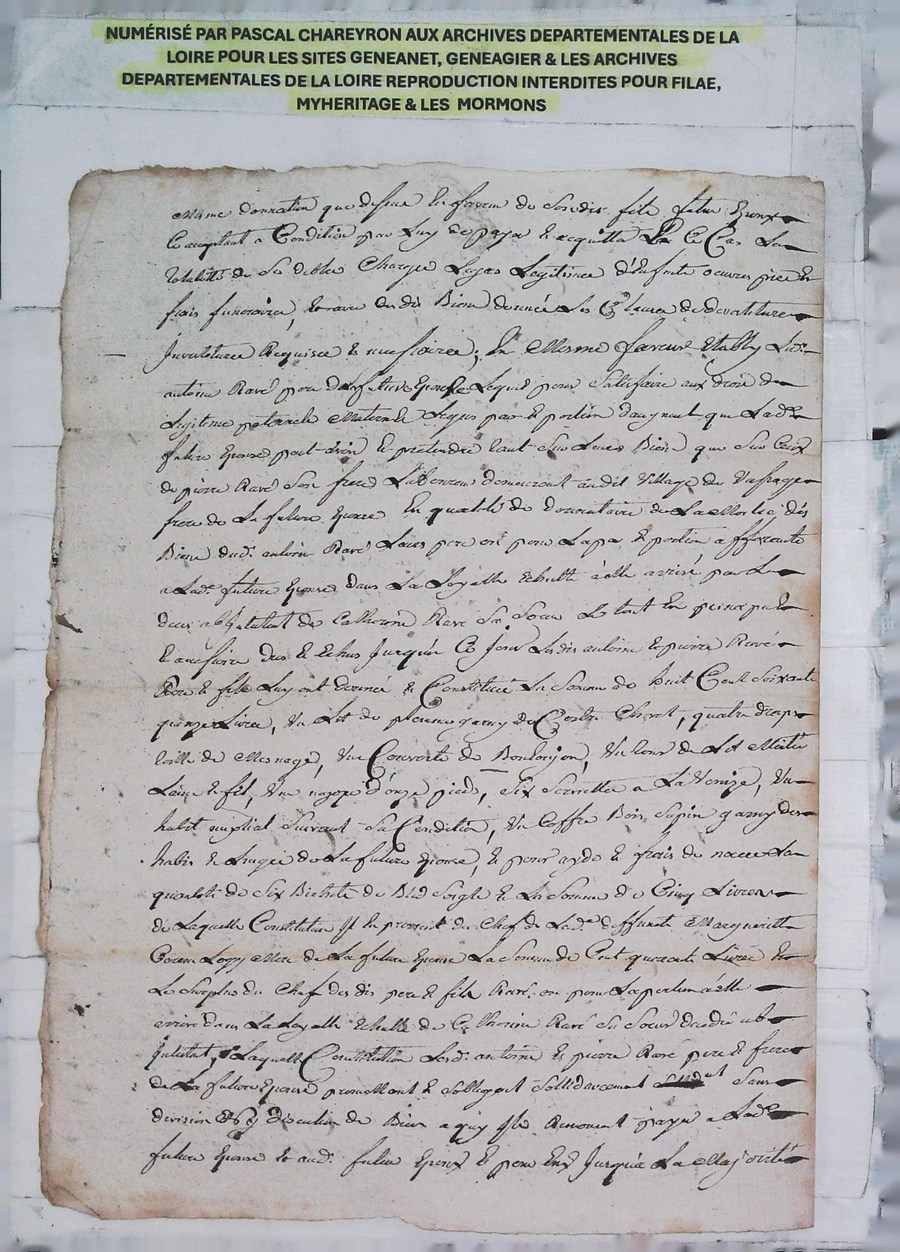 NUMÉRISÉ PAR PASCAL CHAREYRON AUX ARCHIVES DEPARTEMENTALES DE LA
LOIRE POUR LES SITES GENEANET, GENEAGIER & LES ARCHIVES
DEPARTEMENTALES DE LA LOIRE REPRODUCTION INTERDITES POUR FILAE,
MYHERITAGE & LES MORMONS
mesme donnation que dessus en faveur de son dit fils futur Epoux
acceptant a Condition par luy de payer et acquitter En ce Cas La
totalité de Ses debtes Charges Legats Legitimes d'Enfants oeuvres pies et
frais funeraires, des dits Biens donnés Les Clauses de devestitures
Investitures Requises et necessaires; En Mesme faveur Etably Led.
antoine Ravé pere de la future Epouse Lequel pour Satisfaire aux droits de
Legitime paternelle Maternelle Legats part et portion d'augment que Lade
future Epouse peut avoir et pretendre tant Sur Leurs Biens que Sur Ceux
de pierre Ravé Son frere Laboureur demeurant au dit Village du
frere de La future Epouse En qualité de donnataire de La Moitié des
Biens dud. antoine Ravé Leur pere et pour La part et portion afferante
a Lade. future Epouse dans La Loyalle Echutte à elle arrivé par Le
deces ab jntestat de Catherine Ravé Sa Soeur Le tout En principal
et accessoire dus et Echus Jusqu'a Ce Jour Lesdits antoine et pierre Ravé
Pere et fils Luy ont donné et Constitué La Somme de huit Cent Soixante
quinze Livres, Un Lit de plume garny de Coutre Chevet, quatre draps
toille de Mesnage, Une Couverte de Boulojon, Un tour de Lit Moitié
Laine et fil, Une nappe d'onze pieds, Six Serviettes a La Venize, Un
habit nuptial Suivant Sa Condition, Un Coffre Bois Sapin garny des
habits et Linges de La future Epouse, et pour ayde et frais de noces La
quantité de Six Bichets de Bled Seigle et La Somme de Cinq Livres
de Laquelle Constitution Il En provient du Chef de Lade. deffunte Margueritte
Mere de La future Epouse La Somme de Cent quarante Livres et
Le Surplus du Chef des dits pere et fils Ravé, ou pour La portion à elle
arrivé dans La Loyalle Echutte de Catherine Ravé Sa Soeur decedée ab
Intestat, Laquelle Constitution Lesd. antoine et pierre Ravé pere et frere
de La future Epouse promettent et Sobligent Sollidairement Sans
division et discution de Biens a quoy Ils Renoncent payer a Lade
future Epouse et aud. futur Epoux et pour Eux Jusqu'a La Majorité